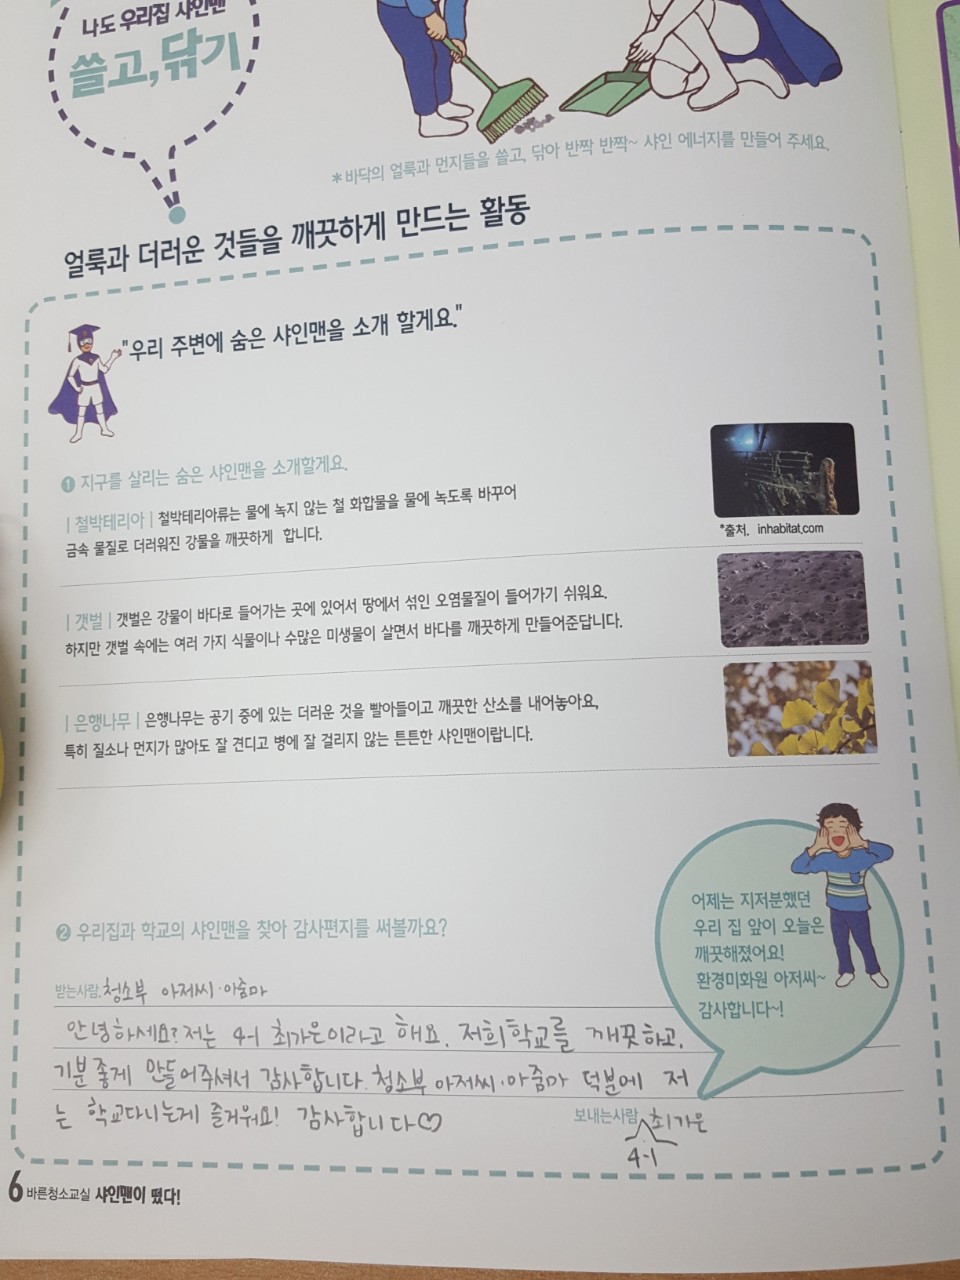 나도 우리집 샤인맨
쓸고, 닦기
*바닥의 얼룩과 먼지들을 쓸고, 닦아 반짝 반짝~ 샤인 에너지를 만들어 주세요.
얼룩과 더러운 것들을 깨끗하게 만드는 활동
"우리 주변에 숨은 샤인맨을 소개 할게요."
❶ 지구를 살리는 숨은 샤인맨을 소개할게요.
| 철박테리아 | 철박테리아류는 물에 녹지 않는 철 화합물을 물에 녹도록 바꾸어
금속 물질로 더러워진 강물을 깨끗하게 합니다.
*출처. inhabitat.com
| 갯벌 | 갯벌은 강물이 바다로 들어가는 곳에 있어서 땅에서 섞인 오염물질이 들어가기 쉬워요.
하지만 갯벌 속에는 여러 가지 식물이나 수많은 미생물이 살면서 바다를 깨끗하게 만들어준답니다.
| 은행나무 | 은행나무는 공기 중에 있는 더러운 것을 빨아들이고 깨끗한 산소를 내어놓아요,
특히 질소나 먼지가 많아도 잘 견디고 병에 잘 걸리지 않는 튼튼한 샤인맨이랍니다.
어제는 지저분했던
우리 집 앞이 오늘은
깨끗해졌어요!
환경미화원 아저씨~
감사합니다~!
❷ 우리집과 학교의 샤인맨을 찾아 감사편지를 써볼까요?
받는사람. 청소부 아저씨·아줌마
안녕하세요? 저는 4-1 최가은이라고 해요. 저희학교를 깨끗하고,
기분좋게 만들어주셔서 감사합니다. 청소부 아저씨·아줌마 덕분에 저
는 학교다니는게 즐거워요! 감사합니다♡
보내는사람 최가은
4-1
6 바른청소교실 샤인맨이 떴다!